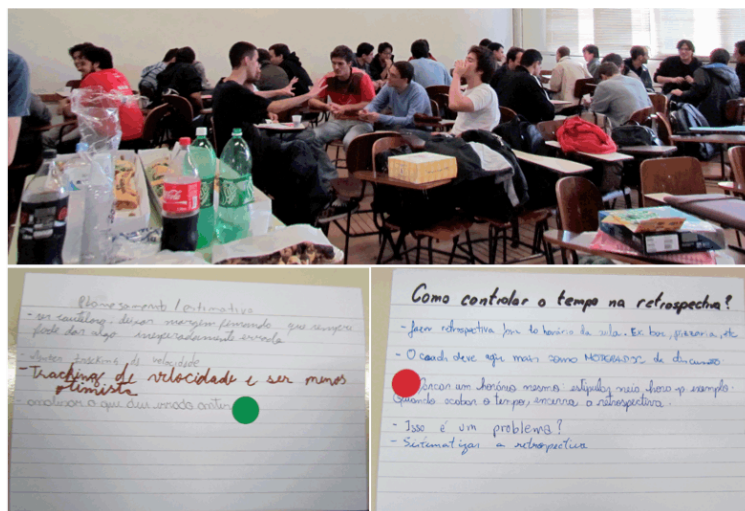 Coca-Cola
Planejamento / estimativa
- ser cauteloso, deixar margem pensando que sempre
pode dar algo inesperadamente errado
tracking de velocidade
- Tracking de velocidade e ser menos
otimista
- analisar o que deu errado
Como controlar o tempo na retrospectiva?
- fazer retrospectiva fora do horário da aula. Ex bar, pizzaria, etc
- O coach deve agir mais como MODERADOR de discussão
um horário mesmo: estipular meia hora p exemplo.
Quando acabar o tempo, encerra a retrospectiva.
- Isso é um problema?
- Sistematizar a retrospectiva